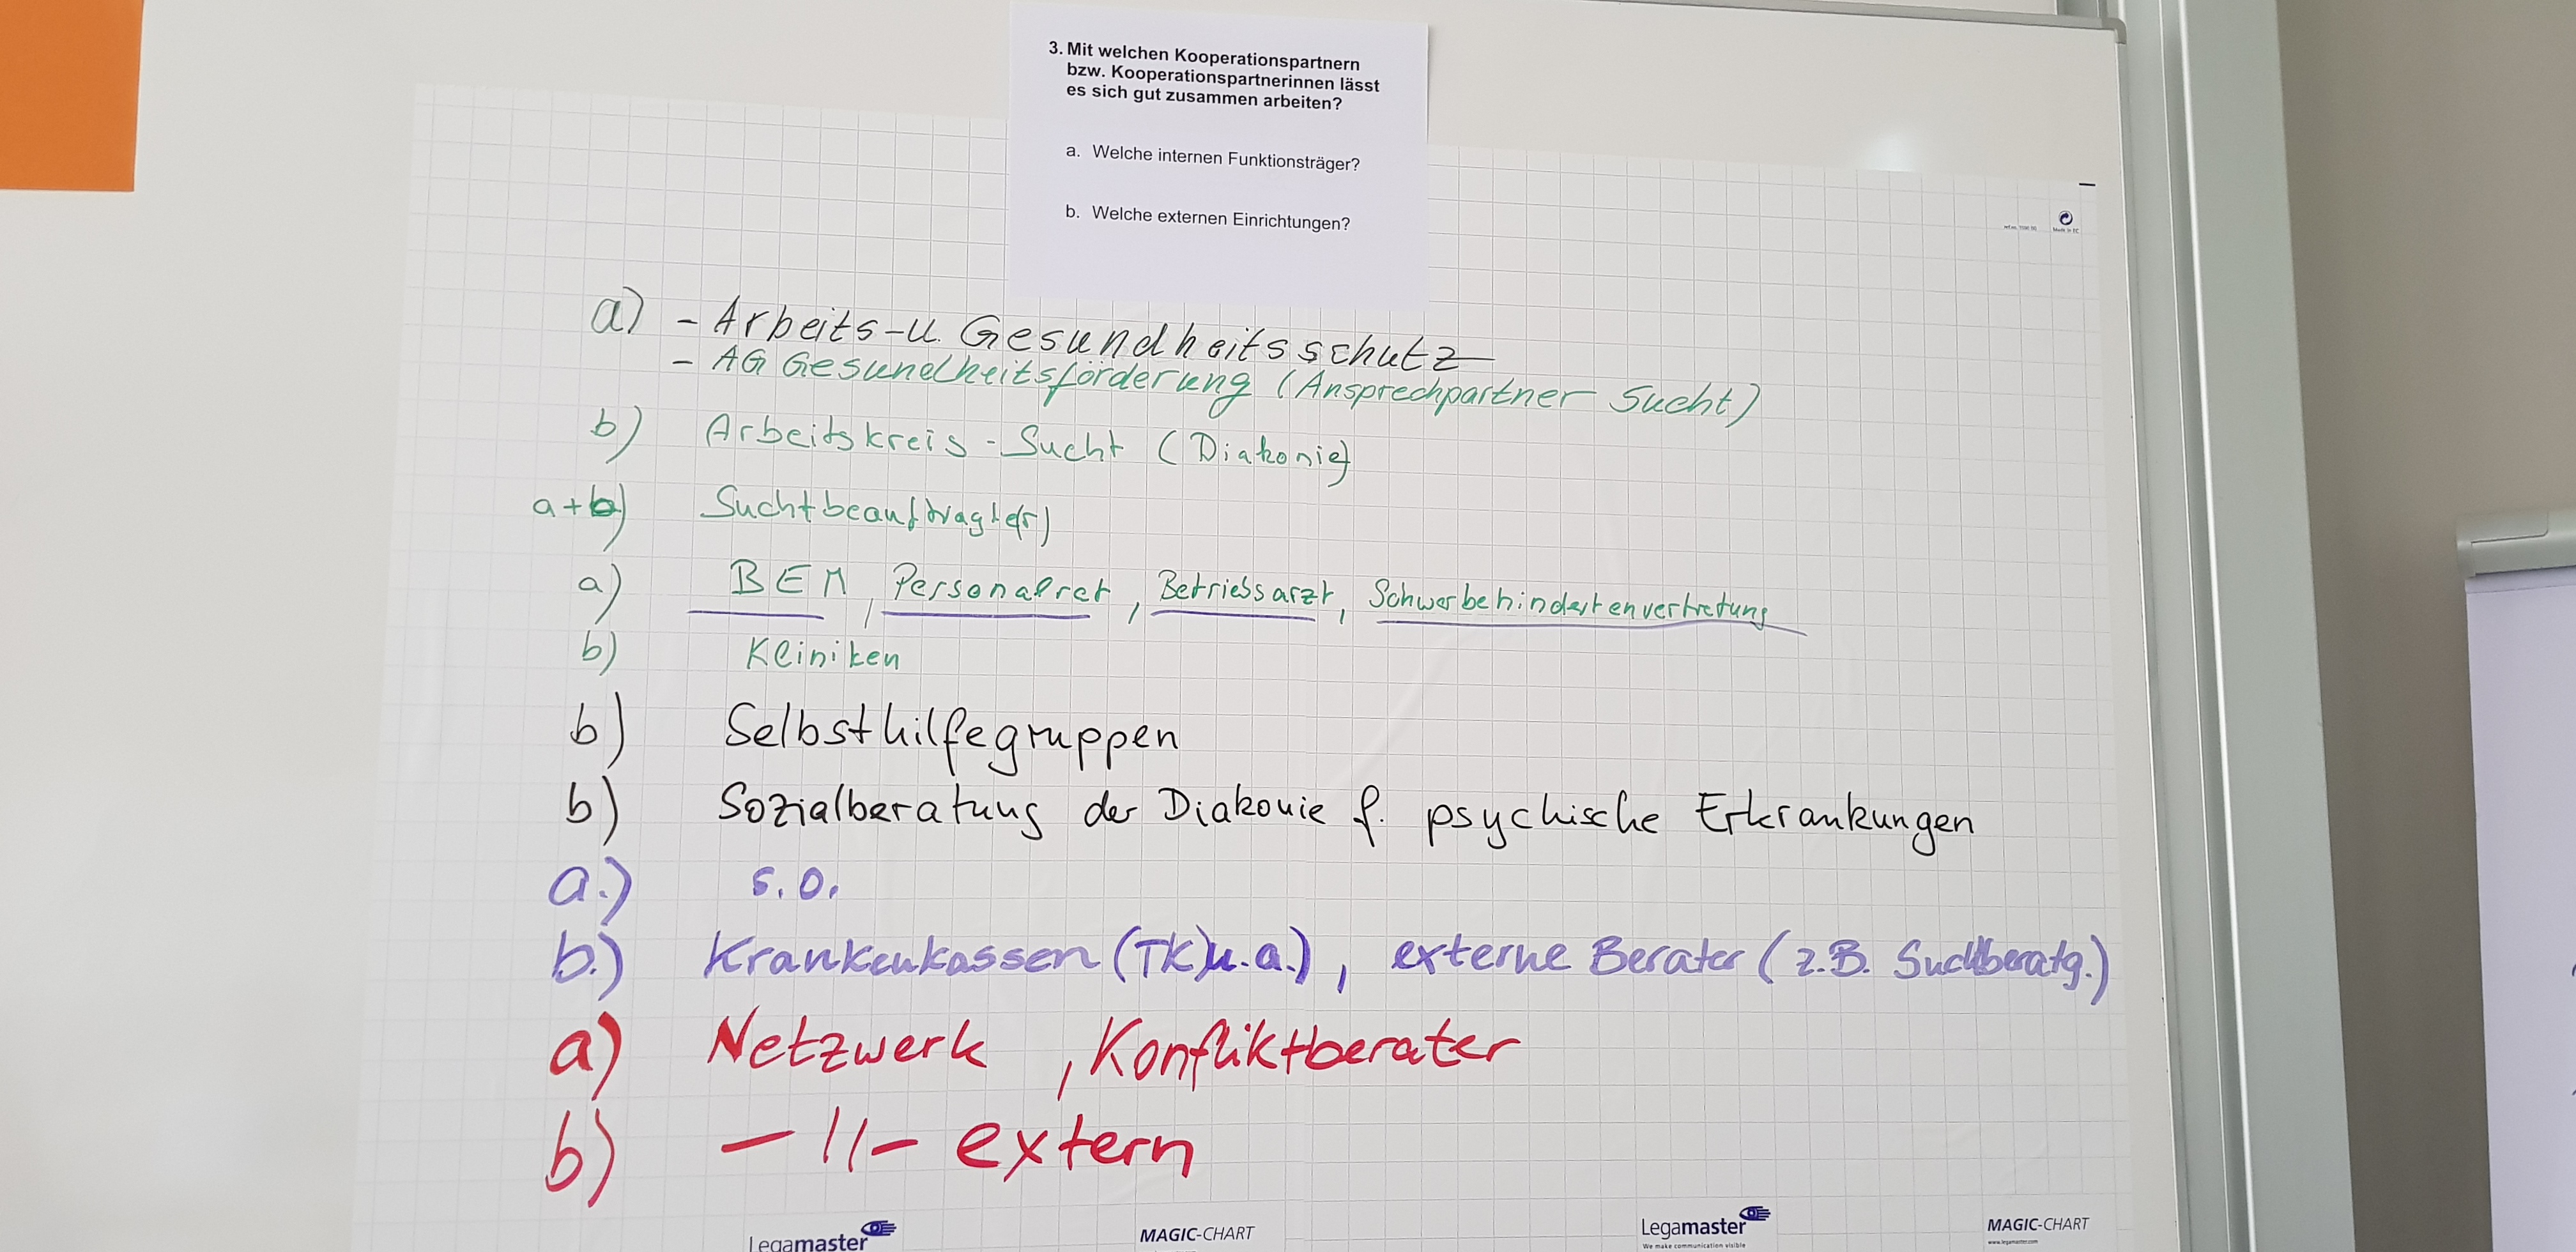 3. Mit welchen Kooperationspartnern
bzw. Kooperationspartnerinnen lässt
es sich gut zusammen arbeiten?
a. Welche internen Funktionsträger?
b. Welche externen Einrichtungen?
a) - Arbeits-u. Gesundheitsschutz
- AG Gesundheitsförderung (Ansprechpartner Sucht)
b) Arbeitskreis-Sucht (Diakonie)
a+b) Suchtbeauftragte(r)
a) BEM, Personalrat, Betriebsarzt, Schwerbehindertenvertretung
b) Kliniken
b) Selbsthilfegruppen
b) Sozialberatung der Diakonie f. psychische Erkrankungen
a.) s.o.
b.) Krankenkassen (TK)u.a.), externe Berater (z.B. Suchtberatg.)
a) Netzwerk, Konfliktberater
b) -//- extern
Legamaster MAGIC-CHART Legamaster MAGIC-CHART
We make communication visible